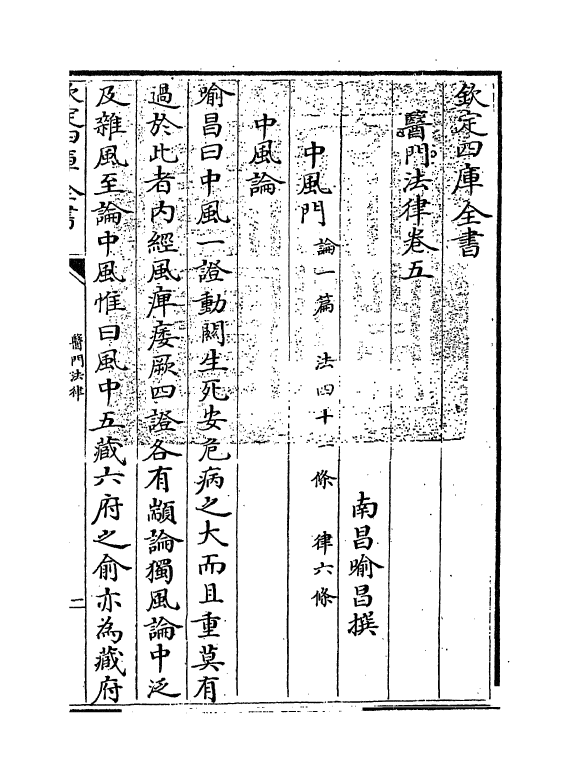 欽定四庫全書
醫門法律卷五
南昌喻昌撰
中風門 論一篇 法四十一條 律六條
中風論
喻昌曰中風一證動關生死安危病之大而且重莫有
過於此者内經風痺痿厥四證各有顓論獨風論中泛
及雜風至論中風惟曰風中五藏六府之俞亦為藏府
欽定四庫全書
醫門法律
一